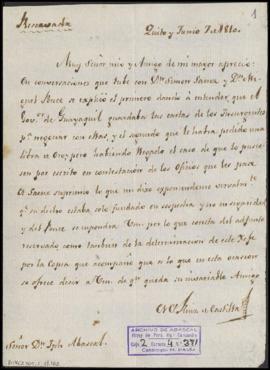 Reservada
Quito y Junio 7 de 1810.
1
Muy Señor mio y Amigo de mi mayor aprecio:
En conversaciones que tube con Dn. Simon Saenz y Dn. Mi-
guel Ponce se explicó el primero dando á entender que el
Govor. de Guayaquil guardaba las cartas de los Insurgentes
pa. negociar con ellas, y el segundo que le habia pedido una
libra de Oro, pero habiendo llegado el caso de que lo pusie-
sen por escrito en contestacion de los Oficios que les pasé
el Saenz suprimio lo que me dijo exponiendome
que su dicho estaba solo fundado en sospecha, y
del Ponce se impondrá Vm. por lo que consta del adjunto
reservado como tambien de la determinacion de este Xefe
por la Copia que acompaño que es lo que en esta ocacion
se ofrece decir á Vm. de qn. queda su invariable Amigo
El Conde Ruiz de Castilla
Señor Dn. Jph. Abascal.
ARCHIVO DE ABASCAL